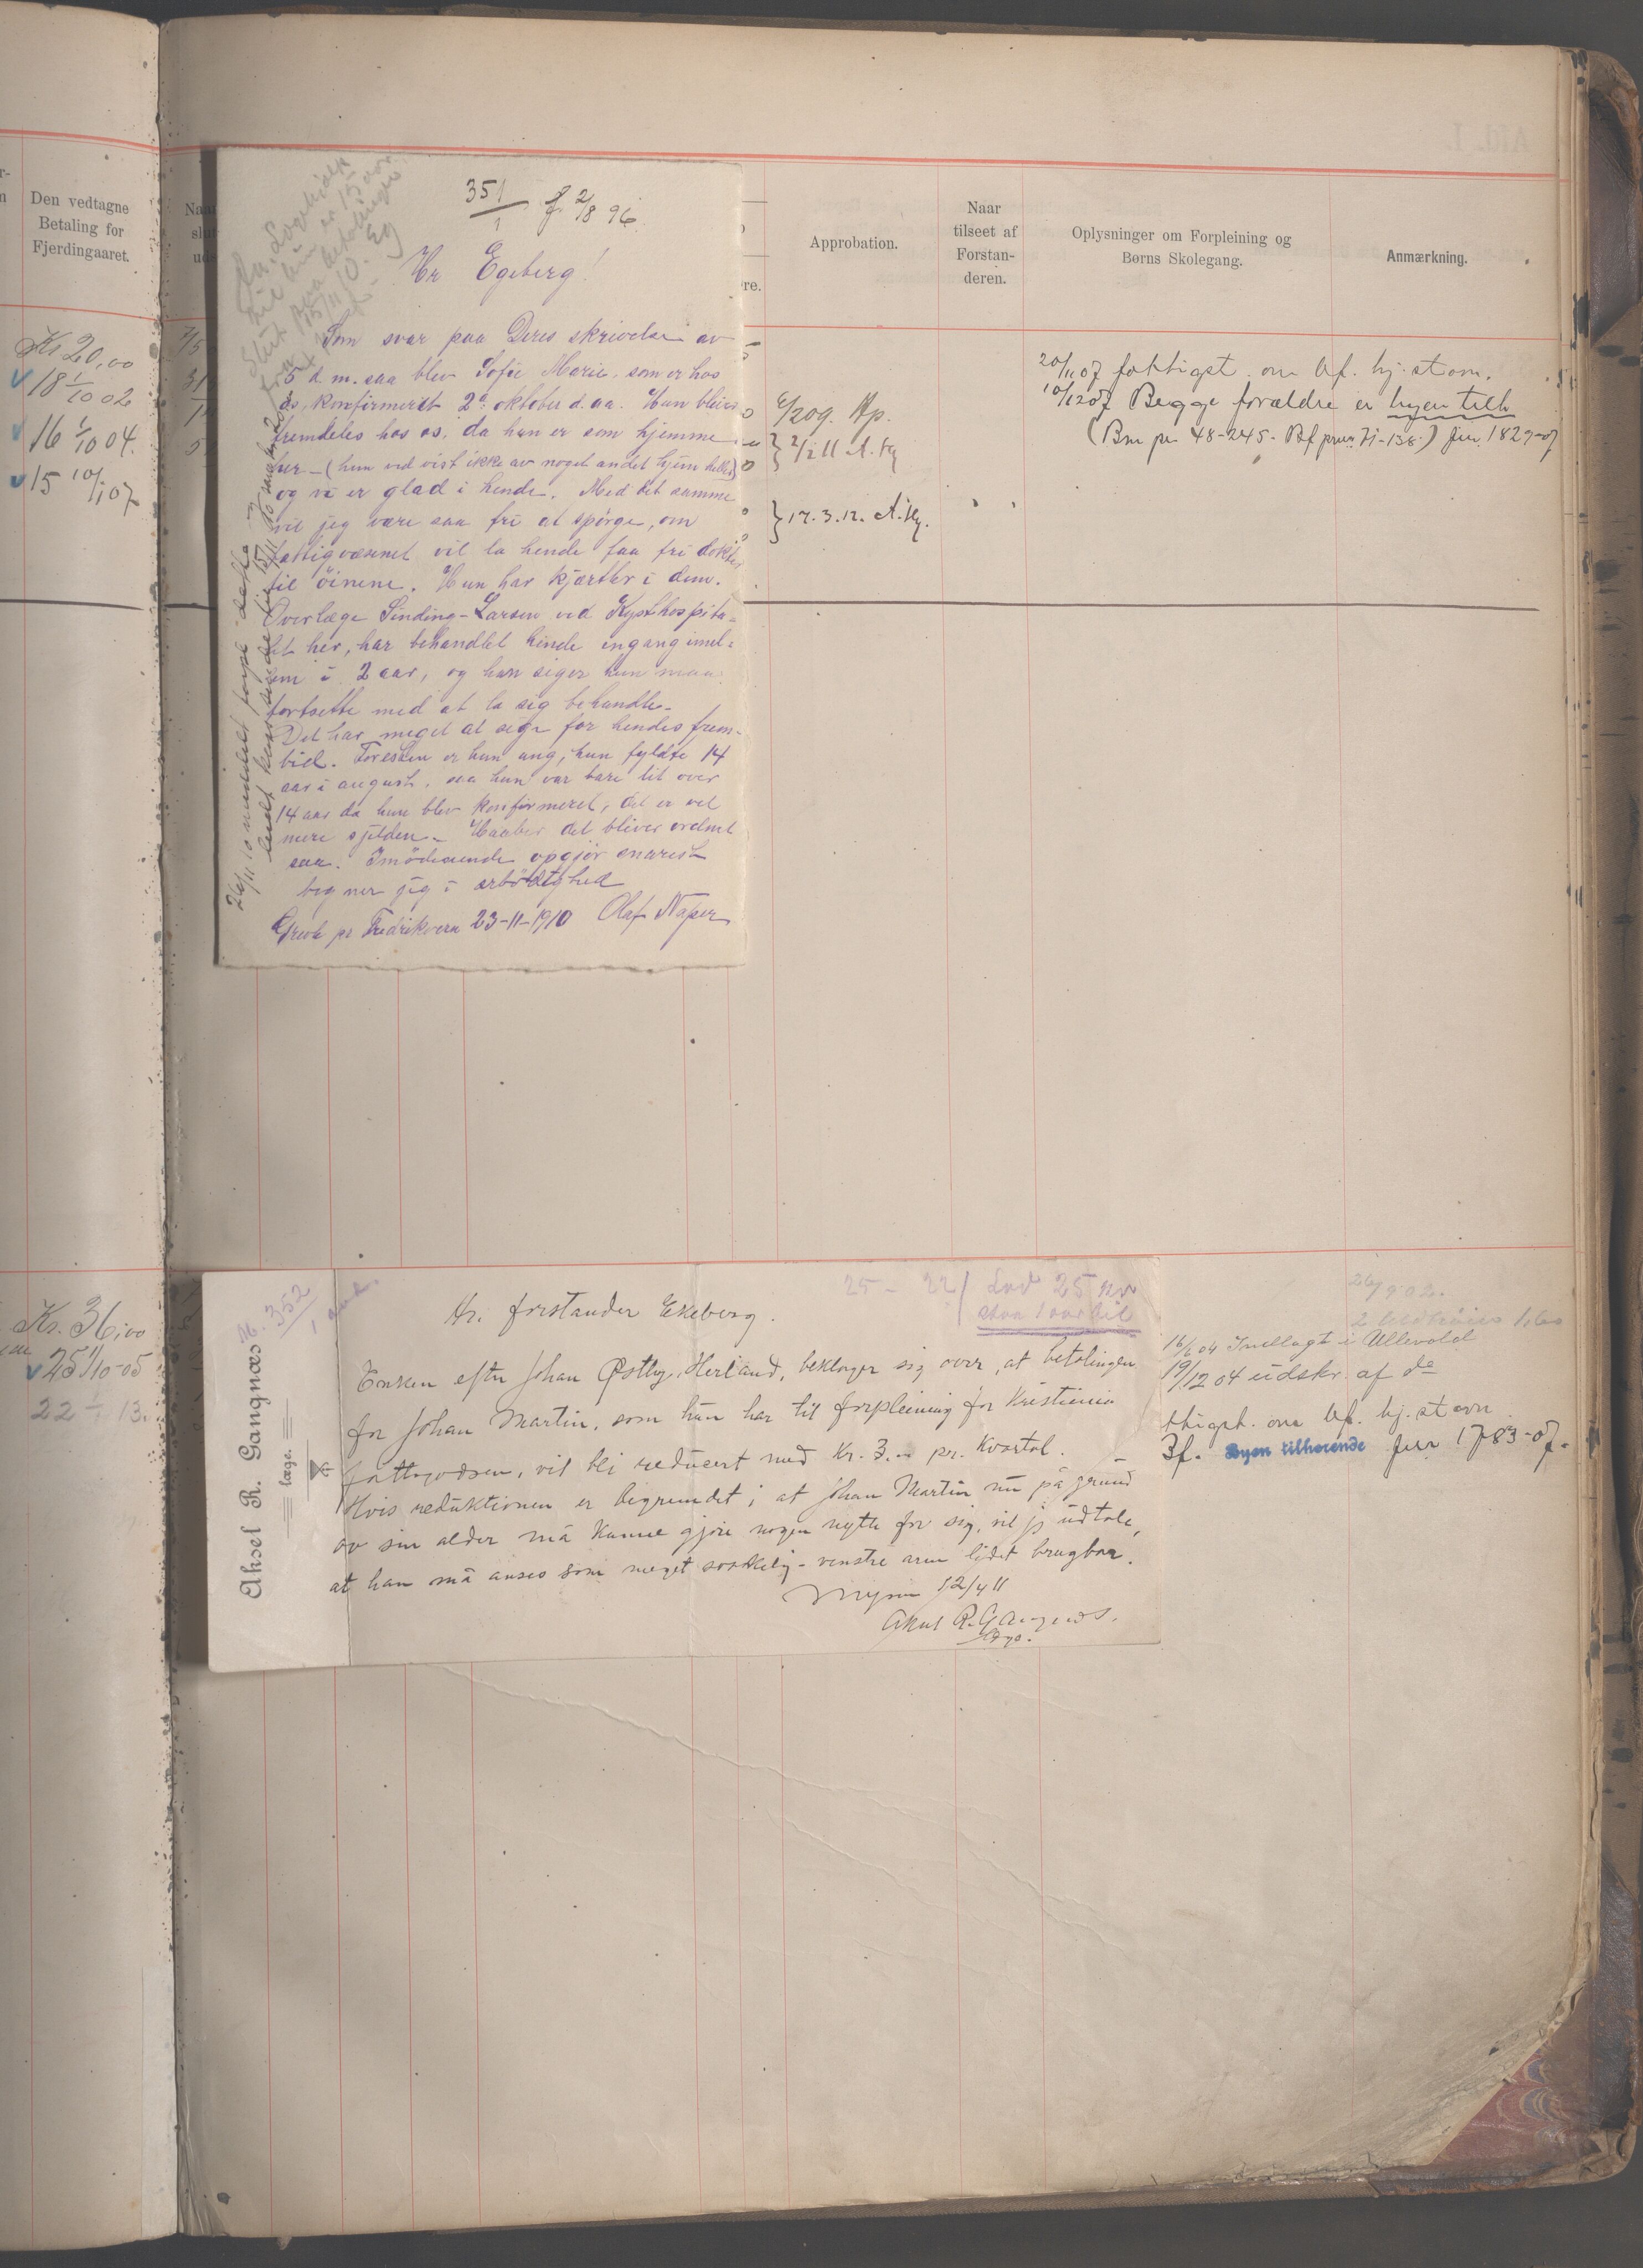 Den vedtagne
Betaling for
Fjerdingaaret.
Kr 20,00
18 1/10 02
16 1/10 04.
15 10/1 07
Kr. 36,00
25 1/10-05
22 13.
Approbation.
Naar
tilseet af
Forstan-
deren.
Oplysninger om Forpleining og
Børns Skolegang.
Anmærkning.
351/1 f. 2/8 96.
Hr Egeberg!
Som svar paa Deres skrivelse av
5 d.m. saa blev Sofie Marie, som er hos
os, konfirmeret 2den oktober d. aa. Hun bliver
fremdeles hos os, da hun er som hjemme
her - (hun ved vist ikke av noget andet hjem heller)
og vi er glad i hende. Med det samme
vil jeg være saa fri at spørge, om
fattigvæsenet vil la hende faa fri doktor
til öinene. Hun har kjertler i dem.
Overlæge Sinding-Larsen ved Kysthospita-
let her, har behandlet hende engang imel-
em i 2 aar, og han siger hun maa
fortsette med at la sig behandle.
Det har meget at sige for hendes frem-
tid. Foresten er hun ung, hun fyldte 14
aar i august, saa hun var bare lit over
14 aar da hun blev konfirmeret, det er vel
mere sjelden. Haaber det bliver ordnet
saa. Imödeseende opgjör snarest
tegner jeg i ærbödighed
Grevle pr Fredriksvern 23-11-1910 Olaf Naper
6/2 09. Ap.
2/2 11 A. Kg
12.3.12. A. Kg.
20/11 07 fattigst. om bf. hj.stavn.
10/12 07 Begge forældre er byen tilh
(Bm pr 48-245. Bf prum 71-138.) Jur. 1829-07
M. 352/1
Aksel R. Gangnæs
læge.
25 - 22/ Lad 25 kr
staa 1 aar til
Hr. forstander Ekeberg.
Enken efter Johan Østby, Herland, beklager sig over, at betalingen
for Johan Martin, som hun har til forpleining for Kristiania
fattigvæsen, vil bli reducert med Kr. 3.00 pr. Kvartal.
Hvis reduktionen er begrundet i at Johan Martin nu på grund
av sin alder må kunne gjøre nogen nytte for sig, vil jeg udtale,
at han må anses som meget svakelig - venstre arm lidet brugbar.
Mysen 12/4 11
Aksel R. Gangnæs.
læge.
26/9 02.
16/6 04 Indlagt i Ullevold
19/12 04 udskr. af do
ttigst. om bf. hj.stavn
Bf. Byen tilhørende Jur 1783-07.